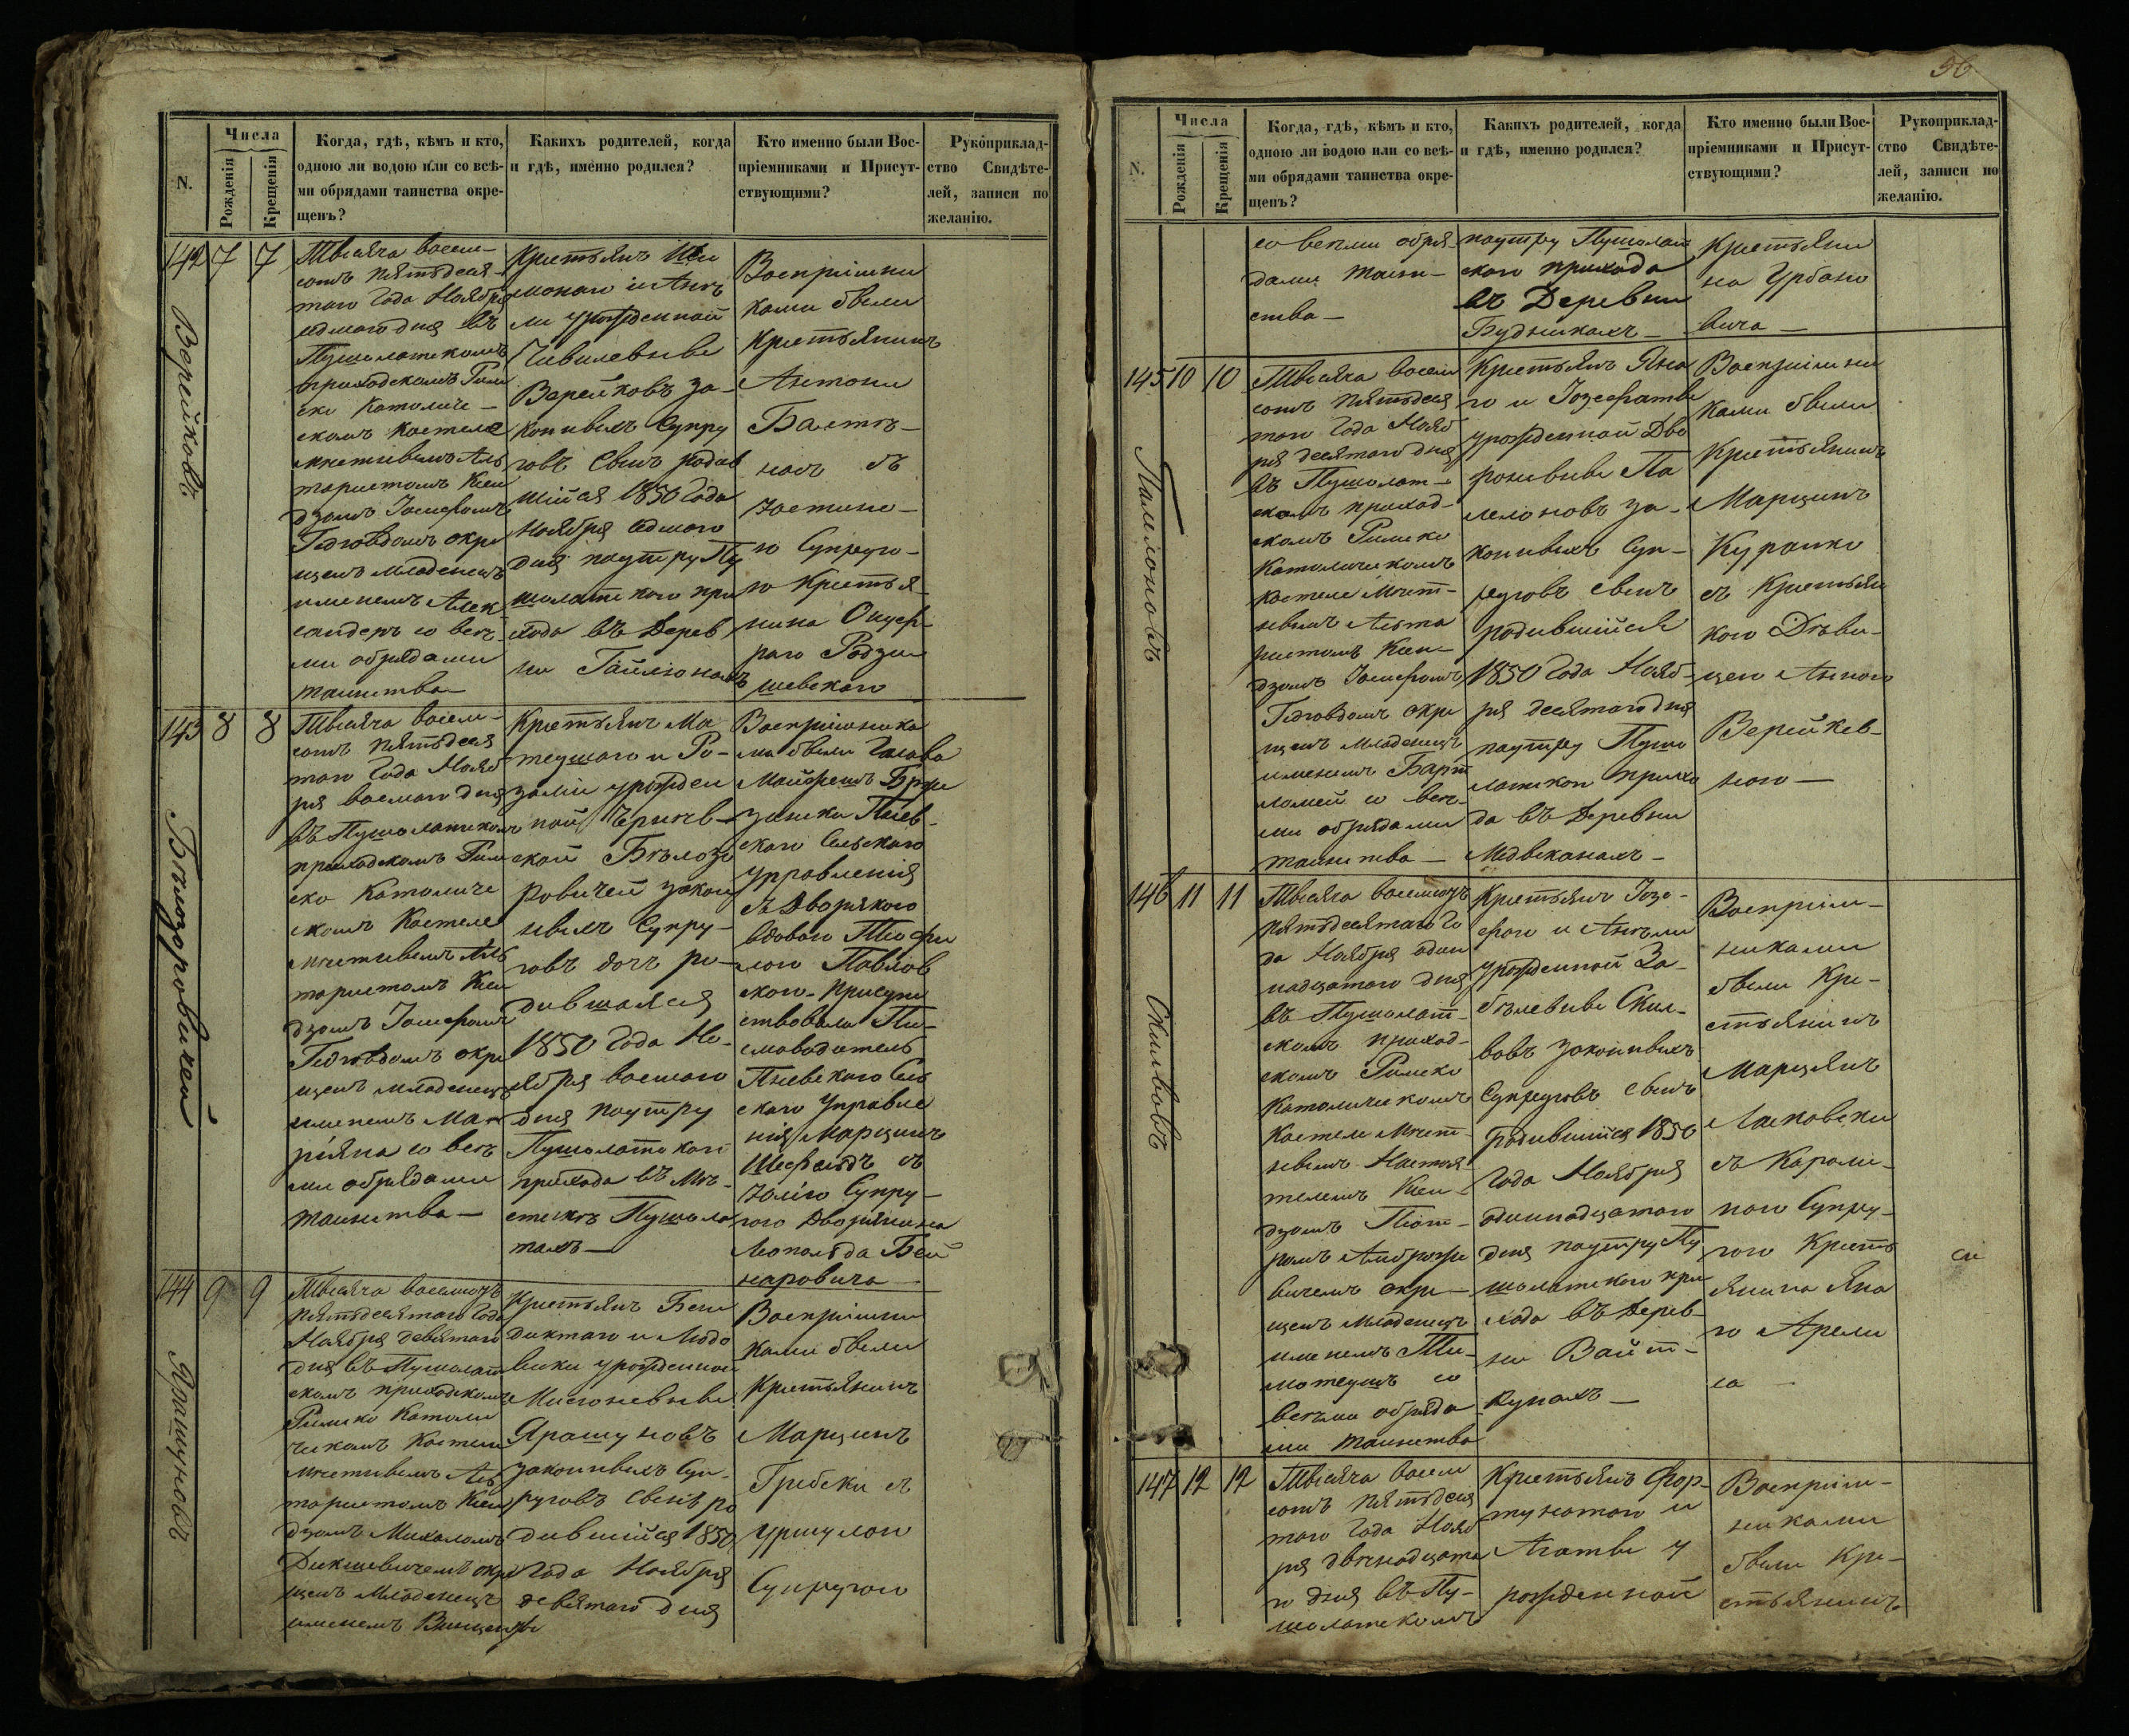 N.
Числа
Рожденія
Крещенія
Когда, гдѣ, кѣмъ и кто,
одною ли водою или со всѣ-
ми обрядами таинства окре-
щенъ?
Какихъ родителей, когда
и гдѣ, именно родился?
Кто именно были Вос-
пріемниками и Присут-
ствующими?
Рукоприклад-
ство Свидѣте-
лей, записи по
желанію.
142
Верейковъ
7
7
Тысяча восем-
сотъ пятьдеся-
таго Года Ноября
седмаго дня въ
Пушолатскомъ
приходскомъ Рим
ско Католиче-
скомъ костеле
мѣстнымъ Аль
таристомъ Ксен
дзомъ Іосифомъ
Гедговдомъ окре
щенъ младенецъ
именемъ Алек
сандеръ со всѣ-
ми обрядами
таинства—
Крестьянъ
и Анѣ
ли урожденной
Верейковъ за-
конныхъ Супру
говъ Сынъ родив
шійся 1850 Года
Ноября седмаго
дня поутру Пу
шолатскаго при
хода въ Дерев
ни Гайлюнахъ
Воспріемни
ками были
Крестьянинъ
Антони
съ
Юстино-
ю Супруго-
ю Крестья-
нина
143
Бѣлозоровичей
8
8
Тысяча восем-
сотъ пятьдеся
таго Года Нояб
ря восмаго дня
въ Пушолатском
приходскомъ Рим
ско Католиче
скомъ Костеле
мѣстнымъ Аль
таристомъ Ксен
дзомъ Іосифомъ
Гедговдомъ окре
щенъ младенецъ
именемъ Ма-
ріяна со всѣ
ми обрядами
таинства—
Крестьянъ Ма
теушаго и Ро-
заліи урожден
ной
ской Бѣлозо
ровичей закон
ныхъ Супру-
говъ дочь ро-
дившаяся
1850 Года Но-
ября восмаго
дня поутру
Пушолатскаго
прихода въ Мѣ-
стечкѣ Пушола
тахъ—
Воспріемника
ми были Голова
скаго Сельского
управленія
съ Дворянкою
вдовою Теофи
лою Павлов
скою. Присутс
ствовали Пи-
смоводитель
скаго Управле
нія Марцинъ
съ
Юлію Супру-
гою Дворянина
Леопольда Бей
наровича
144
Ярашуновъ
9
9
Тысяча восемсотъ
пятьдесятаго Года
Ноября девятаго
дня въ Пушолат
скомъ приходскомъ
Римско Католи
ческомъ Костели
мѣстнымъ Аль
таристомъ Ксен
дзомъ Михаломъ
окре
щенъ Младенецъ
именемъ Винценты
Крестьянъ Бени
диктаго и Людо
вики урожденной
Ярашуновъ
законныхъ Суп-
руговъ сынъ ро
дившійся 1850
Года Ноября
девятаго дня
Воспріемни
ками были
Крестьянинъ
Марцинъ
Гребски съ
Уршулою
Супругою
56
N.
Числа
Рожденія
Крещенія
Когда, гдѣ, кѣмъ и кто,
одною ли водою или со всѣ-
ми обрядами таинства окре-
щенъ?
Какихъ родителей, когда
и гдѣ, именно родился?
Кто именно были Вос-
пріемниками и Присут-
ствующими?
Рукоприклад-
ство Свидѣте-
лей, записи по
желанію.
со всѣми обря-
дами таин-
ства—
поутру Пушолат
скаго прихода
въ Деревни
Будникахъ—
Крестьяни
на Урбано
вича—
145
Памлоновъ
10
10
Тысяча восем
сотъ пятьдеся
таго Года Нояб
ря десятаго дня
въ Пушолат-
скомъ приход-
скомъ Римско
Католическомъ
Костеле Мѣст-
нымъ Альта
ристомъ Ксен-
дзомъ Іосифомъ
Гедговдомъ окре
щенъ младенецъ
именемъ Барт
ломей со всѣ-
ми обрядами
таинства—
Крестьянъ Яна
го и Іозефаты
урожденной
законныхъ Суп-
руговъ сынъ
родившійся
1850 Года Нояб-
ря десятаго дня
поутру Пушо
латскаго прихо
да въ Деревни
Медвеканахъ—
Воспріемни
ками были
Крестьянинъ
Марцинъ
Куранко
съ Крестьян
кою Дѣви-
цею Анною
Верейков-
ною—
146
Скилвовъ
11
11
Тысяча восемсотъ
пятьдесятаго Го
да Ноября один
надцатаго дня
въ Пушолат-
скомъ приход-
скомъ Римско
Католическомъ
Костели Мѣст-
нымъ Настоя-
телемъ Ксен-
дзомъ Піот-
ромъ Амброже
вичемъ окре-
щенъ Младенецъ
именемъ Ти-
мотеушъ со
всѣми обряда
ми таинства
Крестьянъ Іозе-
фаго и Анѣли
урожденной
Скил-
вовъ законныхъ
Супруговъ сынъ
родившійся 1850
Года Ноября
одиннадцатаго
дня поутру Пу
шолатскаго при
хода въ Дерев-
ни Войт-
кунахъ—
Воспріем-
никами
были Кре-
стьянинъ
Марцянъ
Ласковски
съ Кароли-
ною Супру-
гою Кресть
янина Яна
147
12
12
Тысяча восем
сотъ пятьдеся
таго Года Нояб
ря двѣнадцата
го дня въ Пу-
шолатскомъ
Крестьянъ Фор-
тунатаго и
Агаты у
рожденной
Воспріем-
никами
были Кре-
стьянинъ